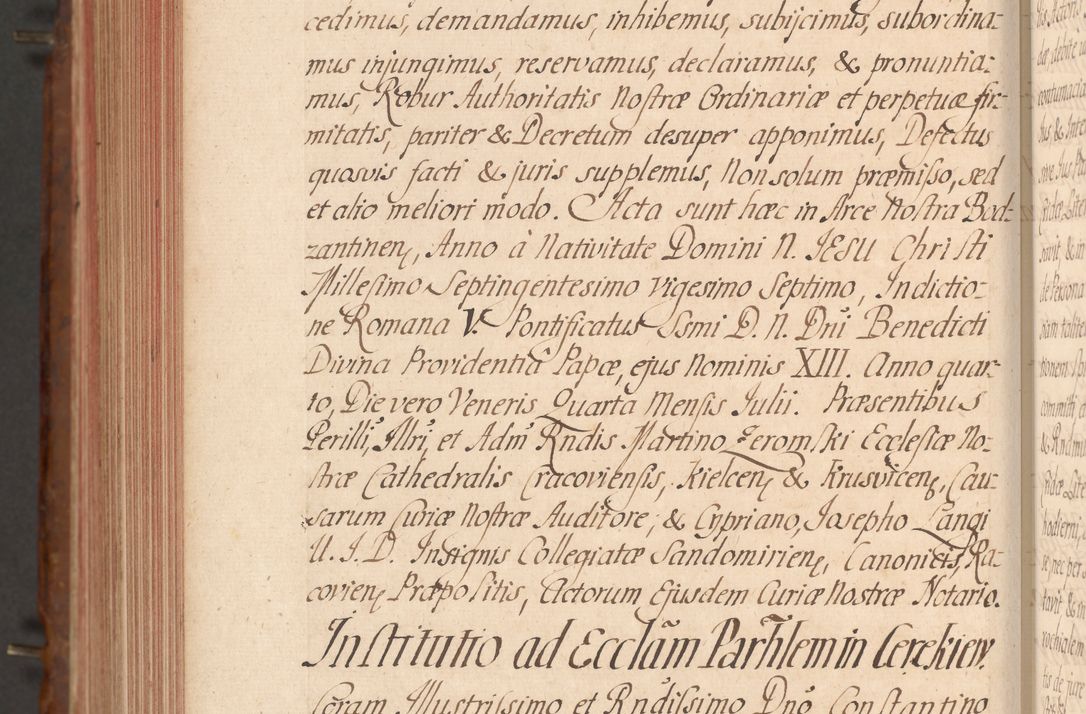 cedimus, demandamus, inhibemus, subijcimus, subordina:
mus injungimus, reservamus, declaramus, & pronuntia:
mus, Robur Authoritatis Nostræ Ordinariæ et perpetuæ fir:
mitatis, pariter & Decretum desuper apponimus, Defectus
quosvis facti & juris supplemus, Non solum præmisso, sed
et alio meliori modo. Acta sunt hæc in Arce Nostra Bod:
zantinen, Anno à Nativitate Domini N. JESU Christi
Millesimo Septingentesimo Vigesimo Septimo, Indictio:
ne Romana V. Pontificatus Ssmi D. N. Dni Benedicti
Divina Providentiâ Papæ, ejus Nominis XIII. Anno quar:
to, Die vero Veneris Quarta Mensis Julii. Præsentibus
Perilli, Illri, et Adm Rndis Martino Zeromski Ecclesiæ No:
stræ Cathedralis Cracoviensis, Kielcen, & Krusvicen, Cau:
sarum Curiæ Nostræ Auditore, & Cypriano, Josepho Langi
U. J. D. Insignis Collegiatæ Sandomirien, Canonicis, Ra:
covien, Præpositis, Actorum Ejusdem Curiæ Nostræ Notario.
Institutio ad Ecclãm Parhlem in Cerekiew.
Coram Illustrissimo et Rndissimo Dno Constantino